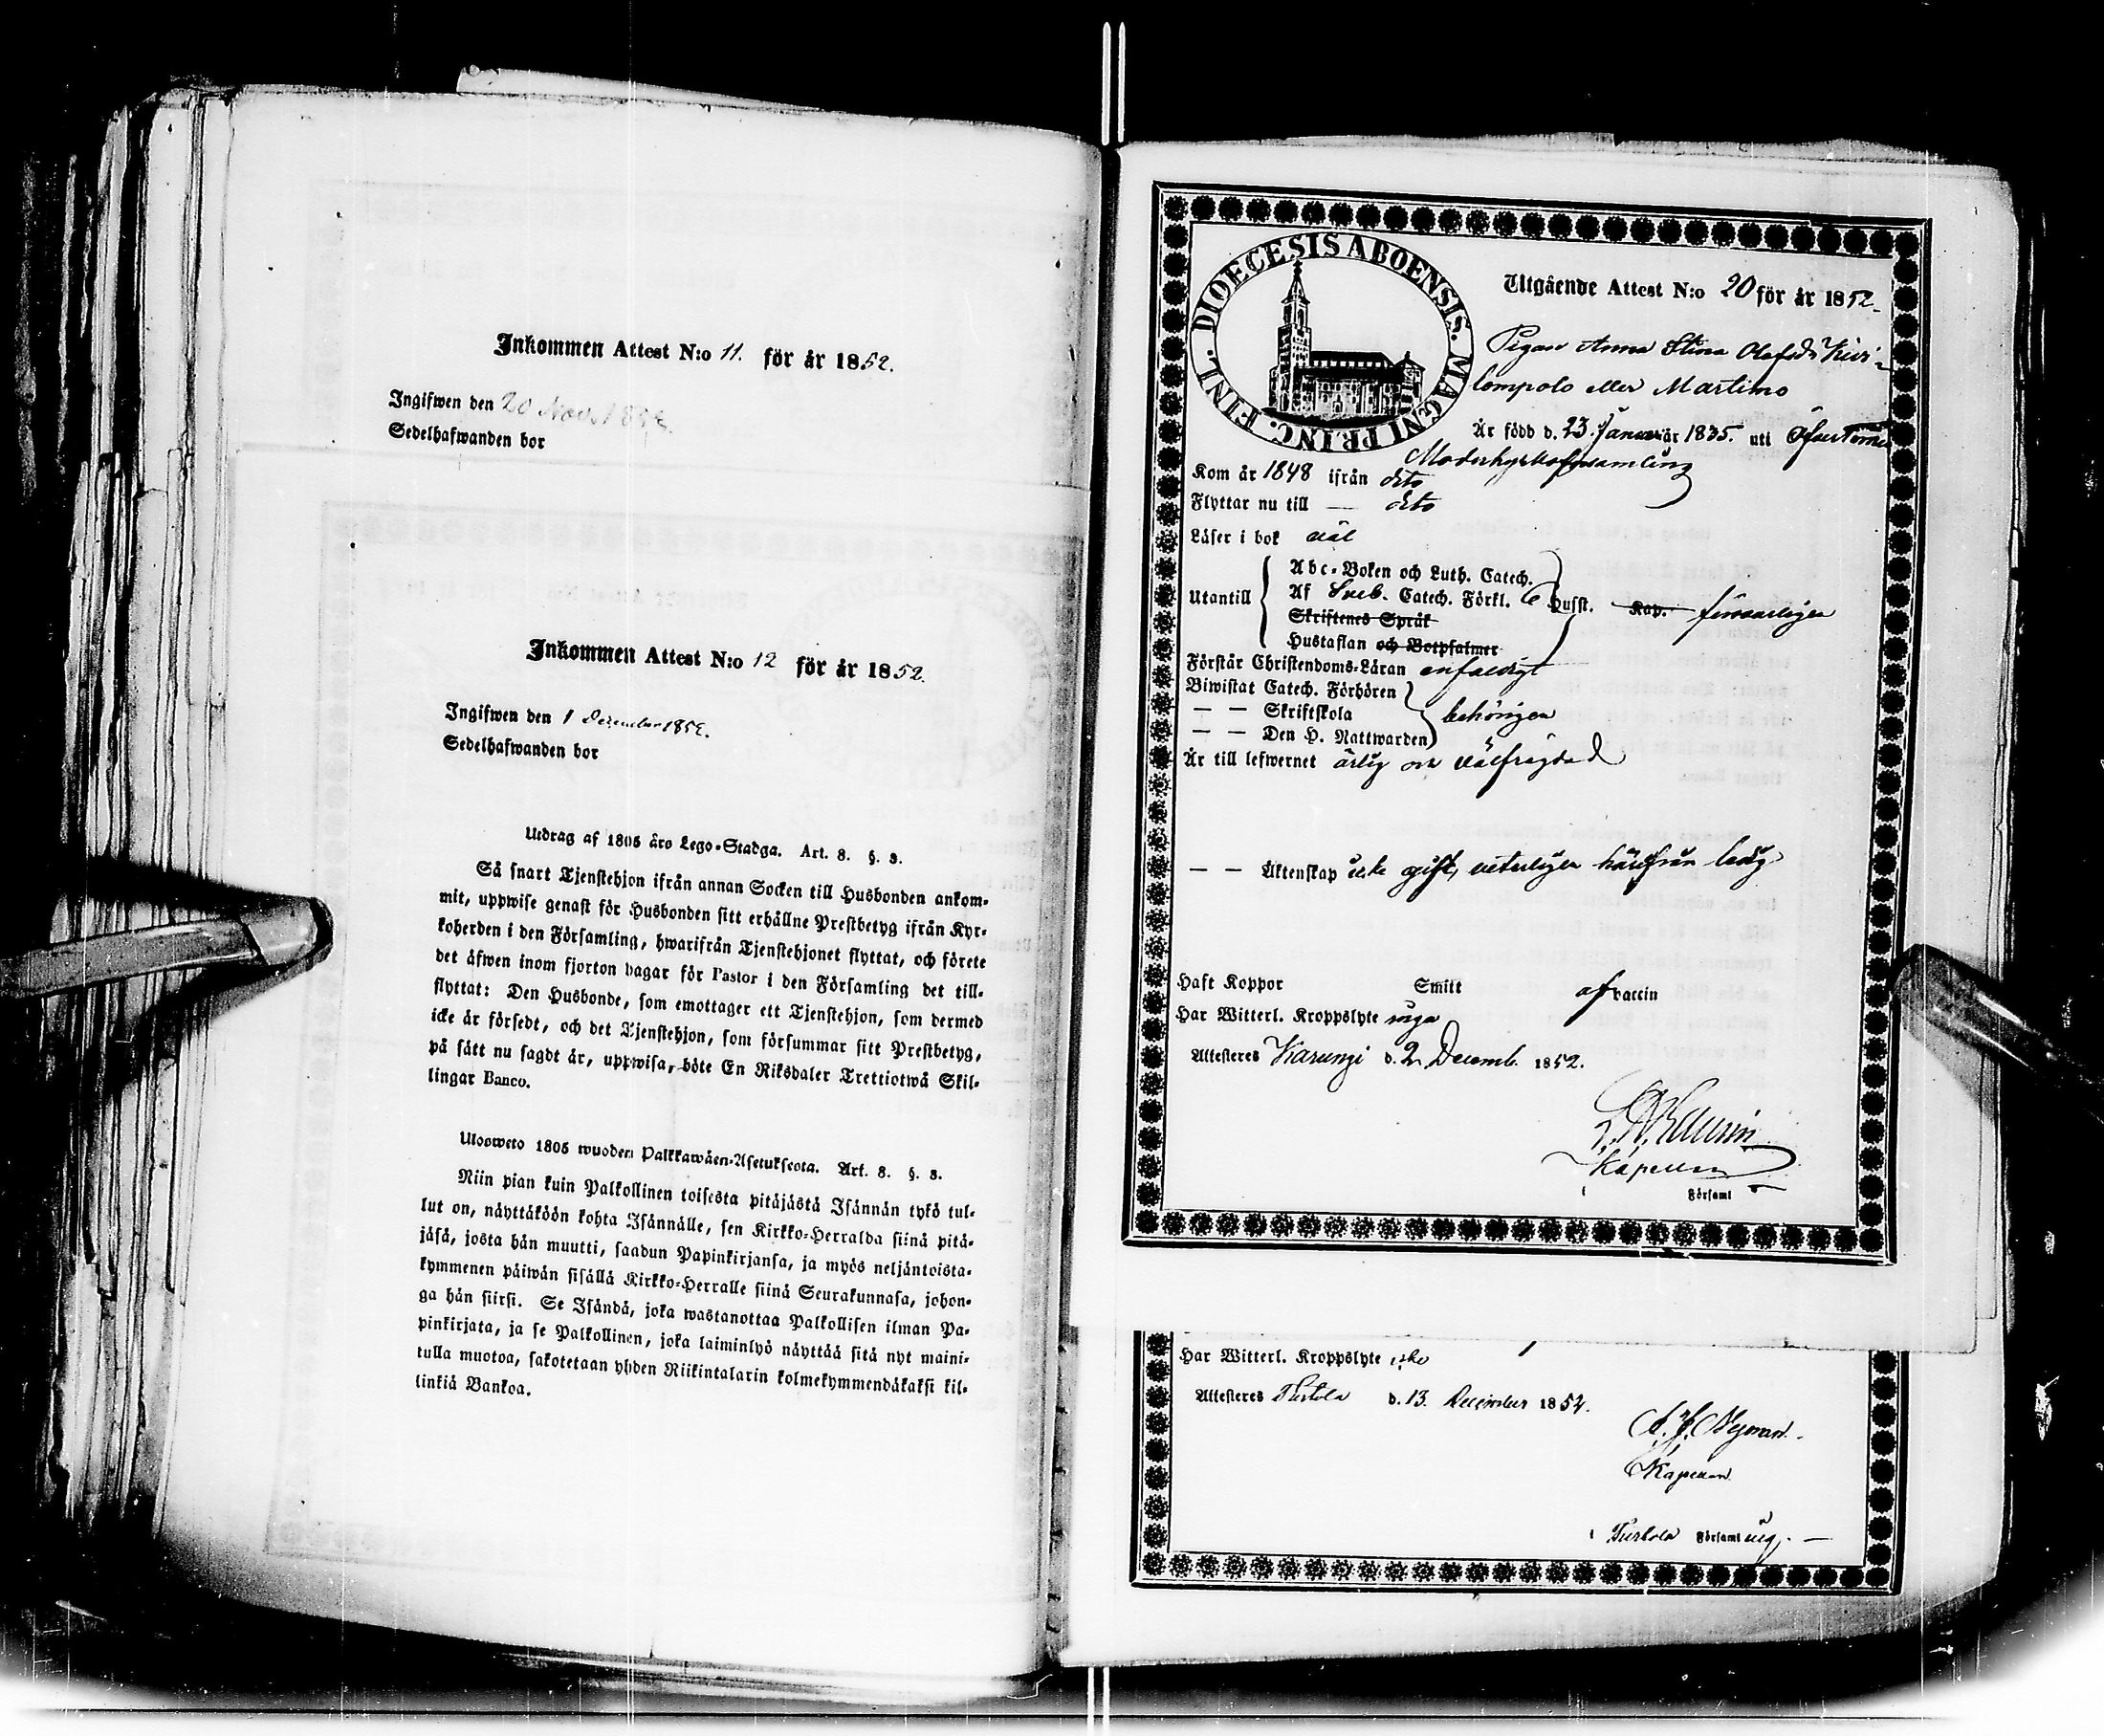 Inkommen Attest N:o 11. för år 1852.
Ingifwen den 20 Nov. 1852.
Sedelhafwanden bor
Inkommen Attest N:o 12 för år 1852.
Ingifwen den 1 December 1852.
Sedelhafwanden bor
Utdrag af 1805 års Lego-Stadga. Art. 8. §. 3.
Så snart Tjenstehjon ifrån annan Socken till Husbonden ankom-
mit, uppwise genast för Husbonden sitt erhållne Prestbetyg ifrån Kyr-
koherden i den Församling, hwarifrån Tjenstehjonet flyttat, och förete
det äfwen inom fjorton dagar för Pastor i den Församling det till-
flyttat: Den Husbonde, som emottager ett Tjenstehjon, som dermed
icke är försedt, och det Tjenstehjon, som försummar sitt Prestbetyg,
på sätt nu sagdt är, uppwisa, böte En Riksdaler Trettiotwå Skil-
lingar Banco.
Ulosweto 1805 wuoden Palkkawäen-Asetuksesta. Art. 8. §. 3.
Niin pian kuin Palkollinen toisesta pitäjästä Isännän tykö tul-
lut on, näyttäköön kohta Isännälle, sen Kirkko-Herralda siinä pitä-
jäsä, josta hän muutti, saadun Papinkirjansa, ja myös neljäntoista-
kymmenen päiwän sisällä Kirkko-Herralle siinä Seurakunnasa, johon-
ga hän siirsi. Se Isändä, joka wastanottaa Palkollisen ilman Pa-
pinkirjata, ja se Palkollinen, joka laiminlyö näyttää sitä nyt maini-
tulla muotoa, sakotetaan yhden Riikintalarin kolmekymmendäkaksi kil-
linkiä Bankoa.
DIOECESIS ABOENSIS. MAGNI PRINC. FINL.
Utgående Attest N:o 20 för år 1852.
Pigan Anna Stina Olofsdr Kivi-
lompolo eller Martimo
Är född d. 23. Januar år 1835. uti Öfver Torneå
Moderkyrkoförsamling
Kom år 1848 ifrån dito
Flyttar nu till — dito
Läser i bok väl
Utantill
Abc-Boken och Luth. Catech.
Af Sveb. Catech. Förkl. 6 Hufst. Kap. försvarligen
Skriftenes Språk
Hustaflan och Botpsalmer
Förstår Christendoms-Läran enfaldigt
Biwistat Catech. Förhören
— — Skriftskola behörigen
— — Den H. Nattwarden
Är till lefwernet ärlig och välfrägdad
— — Äktenskap icke gift, veterligen härifrån ledig
Haft Koppor Smitt af vaccin
Har Witterl. Kroppslyte inga
Attesteras Karungi d. 2 Decemb. 1852.
Kapellan
Församl
Har Witterl. Kroppslyte icke
Attesteras Turtola d. 13. December 1852.
Nyman.
Kapellan
i Turtola Församling. —